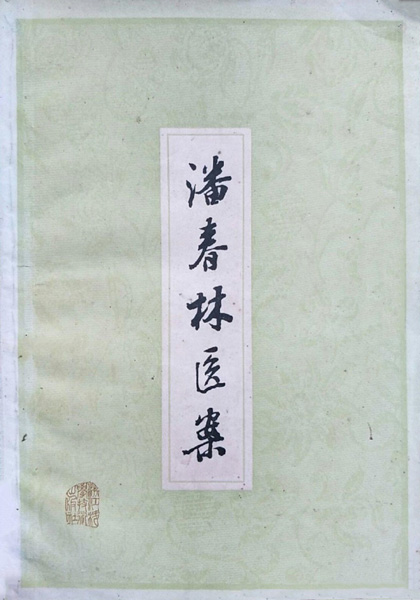 潘春林医案